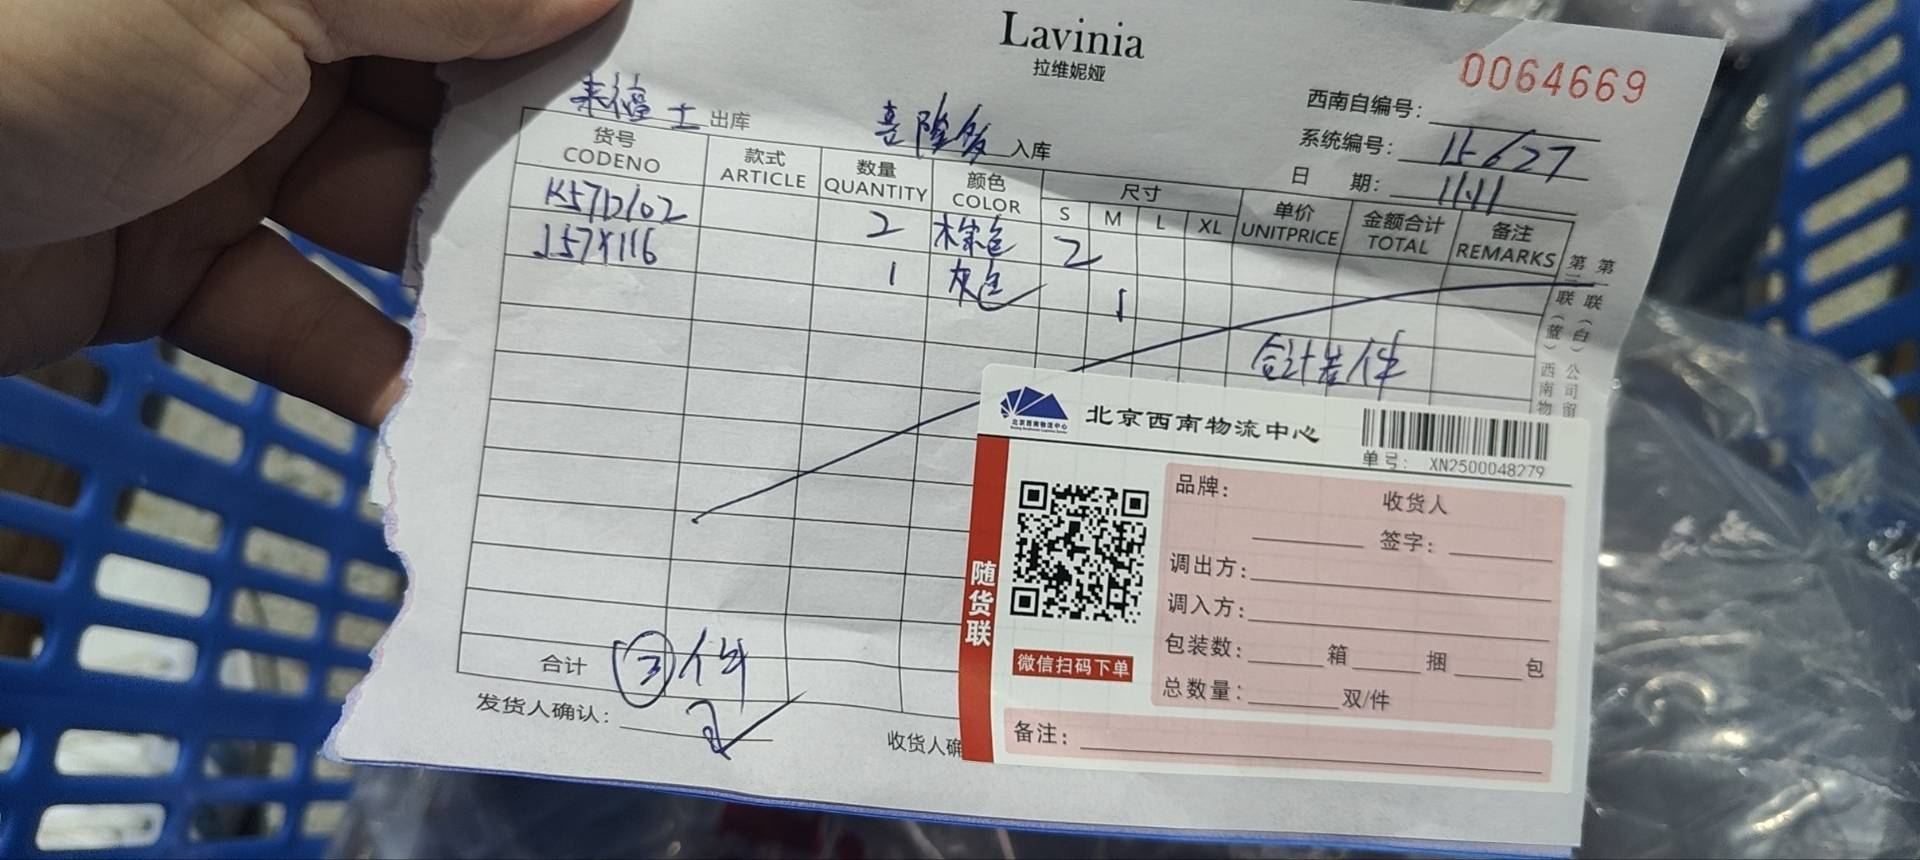 Lavinia
拉维妮娅
0064669
西南自编号:
系统编号: 15627
日 期: 11.11
来福士 出库 喜隆多 入库
货号 款式 数量 颜色 尺寸 单价 金额合计 备注
CODENO ARTICLE QUANTITY COLOR S M L XL UNITPRICE TOTAL REMARKS
K57D102 2 棕色 2
J57X116 1 灰色 1
合计 件
合计 ③件
发货人确认:
收货人确
第 联（白）公司留
第三联（蓝）西南物
北京西南物流中心
单号: XN2500048279
随货联
微信扫码下单
品牌: 收货人
签字:
调出方:
调入方:
包装数: 箱 捆 包
总数量: 双/件
备注: